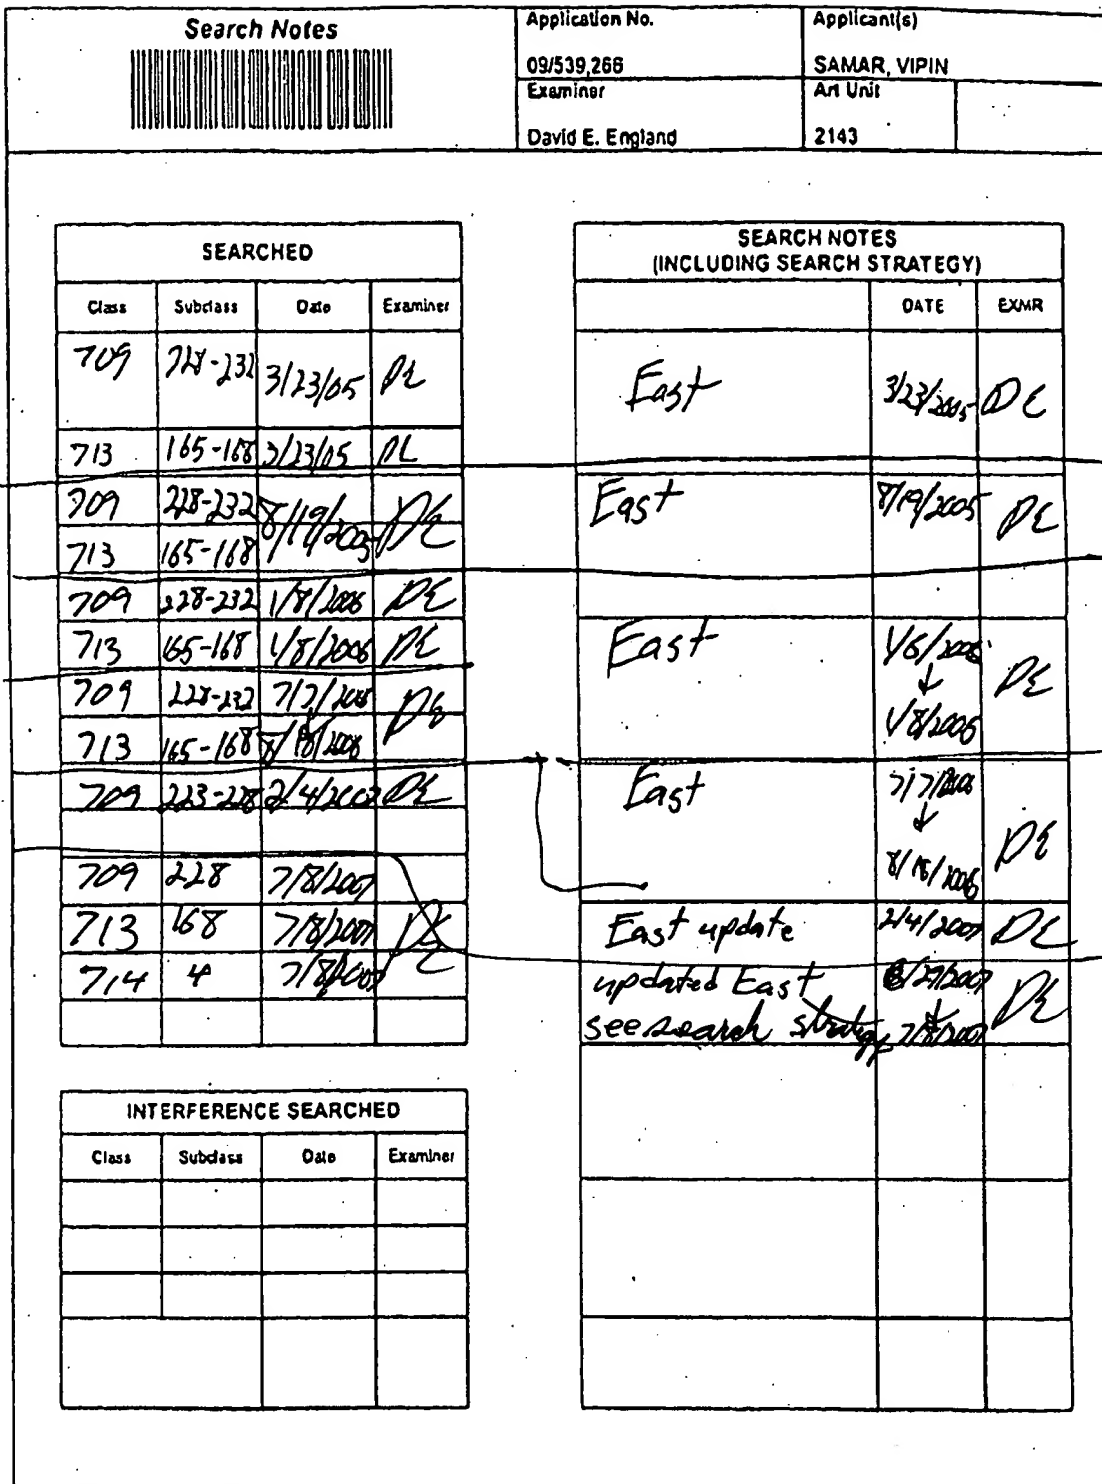 Search Notes
Application No.
09/539,266
Applicant(s)
SAMAR, VIPIN
Examiner
David E. England
Art Unit
2143
SEARCHED
Class Subclass Date Examiner
709 228-232 3/23/05 DE
713 165-168 3/23/05 DE
709 228-232 8/19/2005 DE
713 165-168
709 228-232 1/8/2006 DE
713 165-168 1/8/2006 DE
709 228-232 7/7/2006 DE
713 165-168 8/18/2006
709 223-228 2/4/2007 DE
709 228 7/8/2007
713 168 7/8/2007 DE
714 4 7/8/2007
INTERFERENCE SEARCHED
Class Subclass Date Examiner
SEARCH NOTES
(INCLUDING SEARCH STRATEGY)
DATE EXMR
East 3/23/2005 DE
East 8/19/2005 DE
East 1/6/2006 DE
↓
1/8/2006
East 7/7/2006
↓
8/18/2006 DE
East update 2/4/2007 DE
updated East 6/27/2007 DE
↓
see search strategy 7/8/2007